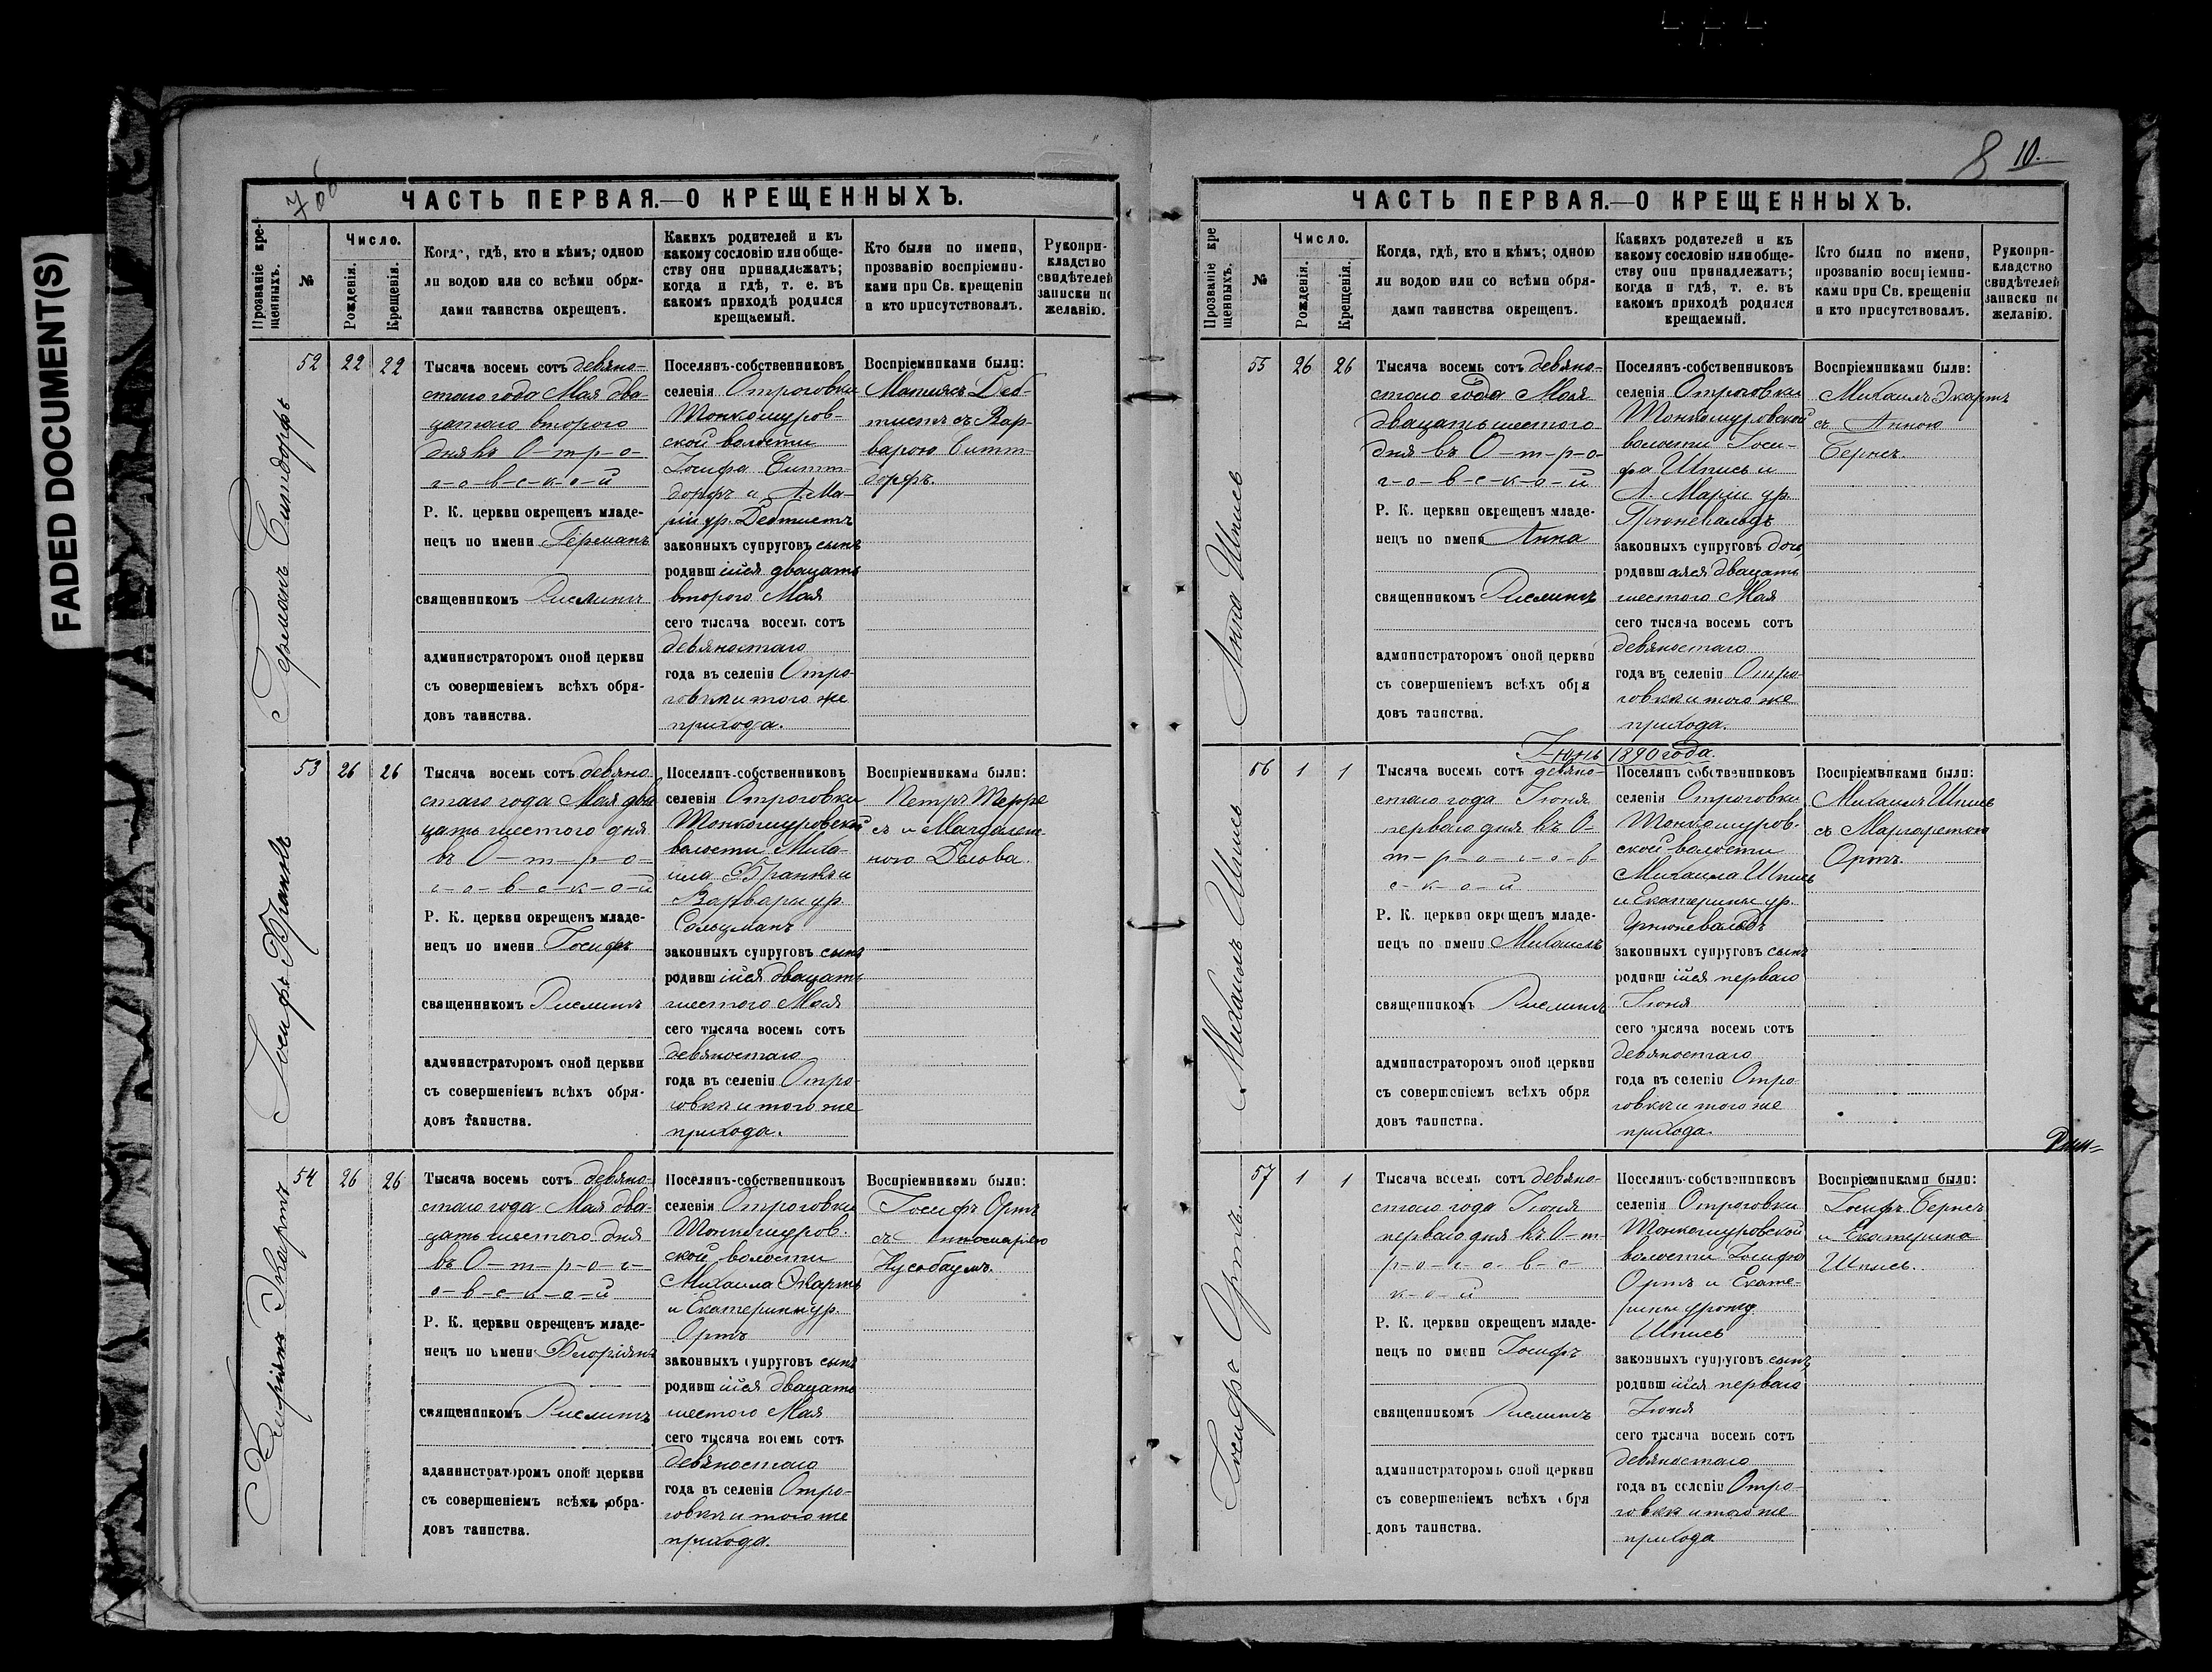 FADED DOCUMENT(S)
ЧАСТЬ ПЕРВАЯ.—О КРЕЩЕННЫХЪ.
Прозваніе кре-
щенныхъ.
№
Число.
Рожденія.
Крещенія.
Когда, гдѣ, кто и кѣмъ; одною
ли водою или со всѣми обря-
дами таинства окрещенъ.
Какихъ родителей и къ
какому сословію или обще-
ству они принадлежатъ;
когда и гдѣ, т. е. въ
какомъ приходѣ родился
крещаемый.
Кто были по имени,
прозванію воспріемни-
ками при Св. крещеніи
и кто присутствовалъ.
Рукопри-
кладство
свидѣтелей
записки по
желанію.
52
22
22
Тысяча восемь сотъ девяно-
стаго года Мая два
цатаго второго
дня въ О-т-р-о-
г-о-в-с-к-о-й
Р. К. церкви окрещенъ младе-
нецъ по имени Германъ
священникомъ
администраторомъ оной церкви
съ совершеніемъ всѣхъ обря-
довъ таинства.
Поселянъ-собственниковъ
селенія Отроговки
Тонкошуров-
ской волости
Іосифа
законныхъ супруговъ сынъ
родившійся двацать
второго Мая
сего тысяча восемь сотъ
девяностаго
года въ селеніи Отро-
говки и того же
прихода.
Воспріемниками были:
53
26
26
Іосифъ Франкъ
Тысяча восемь сотъ девяно
стаго года Мая два
цать шестого дня
въ О-т-р-о-
г-о-в-с-к-о-й
Р. К. церкви окрещенъ младе-
нецъ по имени Іосифъ
священникомъ
администраторомъ оной церкви
съ совершеніемъ всѣхъ обря-
довъ таинства.
Поселянъ-собственниковъ
селенія Отроговки
Тонкошуровской
волости Миха-
ила Франкъ и
Варвары ур.
Сальцманъ
законныхъ супруговъ сынъ
родившійся двацать
шестого Мая
сего тысяча восемь сотъ
девяностаго
года въ селеніи Отро-
говки и того же
прихода.
Воспріемниками были:
Петръ
54
26
26
Тысяча восемь сотъ девяно-
стаго года Мая два-
цать шестого дня
въ О-т-р-о-г-
о-в-с-к-о-й
Р. К. церкви окрещенъ младе-
нецъ по имени Флоріанъ
священникомъ
администраторомъ оной церкви
съ совершеніемъ всѣхъ обря-
довъ таинства.
Поселянъ-собственниковъ
селенія Отроговки
Тонкошуров-
ской волости
Михаила Экартъ
и Екатерины ур.
Ортъ
законныхъ супруговъ сынъ
родившійся двацать
шестого Мая
сего тысяча восемь сотъ
девяностаго
года въ селеніи Отро-
говки и того же
прихода.
Воспріемниками были:
Іосифъ Ортъ
съ
Нусбаумъ.
8 10.
ЧАСТЬ ПЕРВАЯ.—О КРЕЩЕННЫХЪ.
Прозваніе кре
щенныхъ.
№
Число.
Рожденія.
Крещенія.
Когда, гдѣ, кто и кѣмъ; одною
ли водою или со всѣми обря-
дами таинства окрещенъ.
Какихъ родителей и къ
какому сословію или обще-
ству они принадлежатъ;
когда и гдѣ, т. е. въ
какомъ приходѣ родился
крещаемый.
Кто были по имени,
прозванію воспріемни-
ками при Св. крещеніи
и кто присутствовалъ.
Рукопри-
кладство
свидѣтелей
записки по
желанію.
Анна Шписъ
55
26
26
Тысяча восемь сотъ девяно-
стаго года Мая
двацать шестого
дня въ О-т-р-о-
г-о-в-с-к-о-й
Р. К. церкви окрещенъ младе-
нецъ по имени Анна
священникомъ
администраторомъ оной церкви
съ совершеніемъ всѣхъ обря
довъ таинства.
Поселянъ-собственниковъ
селенія Отроговки
Тонкошуровской
волости Іоси-
фа Шписъ и
А. Маріи ур.
Грюневальдъ
законныхъ супруговъ дочь,
родившаяся двацать
шестого Мая
сего тысяча восемь сотъ
девяностаго
года въ селеніи Отро-
говки и того же
прихода.
Воспріемниками были:
Михаилъ Экартъ
съ Анною
Бернсъ.
Іюнь 1890 года.
Михаилъ Шписъ
56
1
1
Тысяча восемь сотъ девяно-
стаго года Іюня
перваго дня въ О-
т-р-о-г-о-в-
с-к-о-й
Р. К. церкви окрещенъ младе-
нецъ по имени Михаилъ
священникомъ
администраторомъ оной церкви
съ совершеніемъ всѣхъ обря
довъ таинства.
Поселянъ собственниковъ
селенія Отроговки
Тонкошуров-
ской волости
Михаила Шписъ
и Екатерины ур.
Грюневальдъ
законныхъ супруговъ сынъ
родившійся перваго
Іюня
сего тысяча восемь сотъ
девяностаго
года въ селеніи Отро-
говки и того же
прихода.
Воспріемниками были:
Михаилъ Шписъ
съ Маргаретою
Ортъ.
Іосифъ Ортъ.
57
1
1
Тысяча восемь сотъ девяно-
стаго года Іюня
перваго дня въ О-т-
р-о-г-о-в-с-
к-о-й
Р. К. церкви окрещенъ младе-
нецъ по имени Іосифъ
священникомъ
администраторомъ оной церкви
съ совершеніемъ всѣхъ обря
довъ таинства.
Поселянъ-собственниковъ
селенія Отроговки
Тонкошуровской
волости Іосифа
Ортъ и Екате-
рины урожд.
Шписъ
законныхъ супруговъ сынъ
родившійся перваго
Іюня
сего тысяча восемь сотъ
девяностаго
года въ селеніи Отро-
говки и того же
прихода
Воспріемниками были:
Іосифъ Бернсъ
и Екатерина
Шписъ.